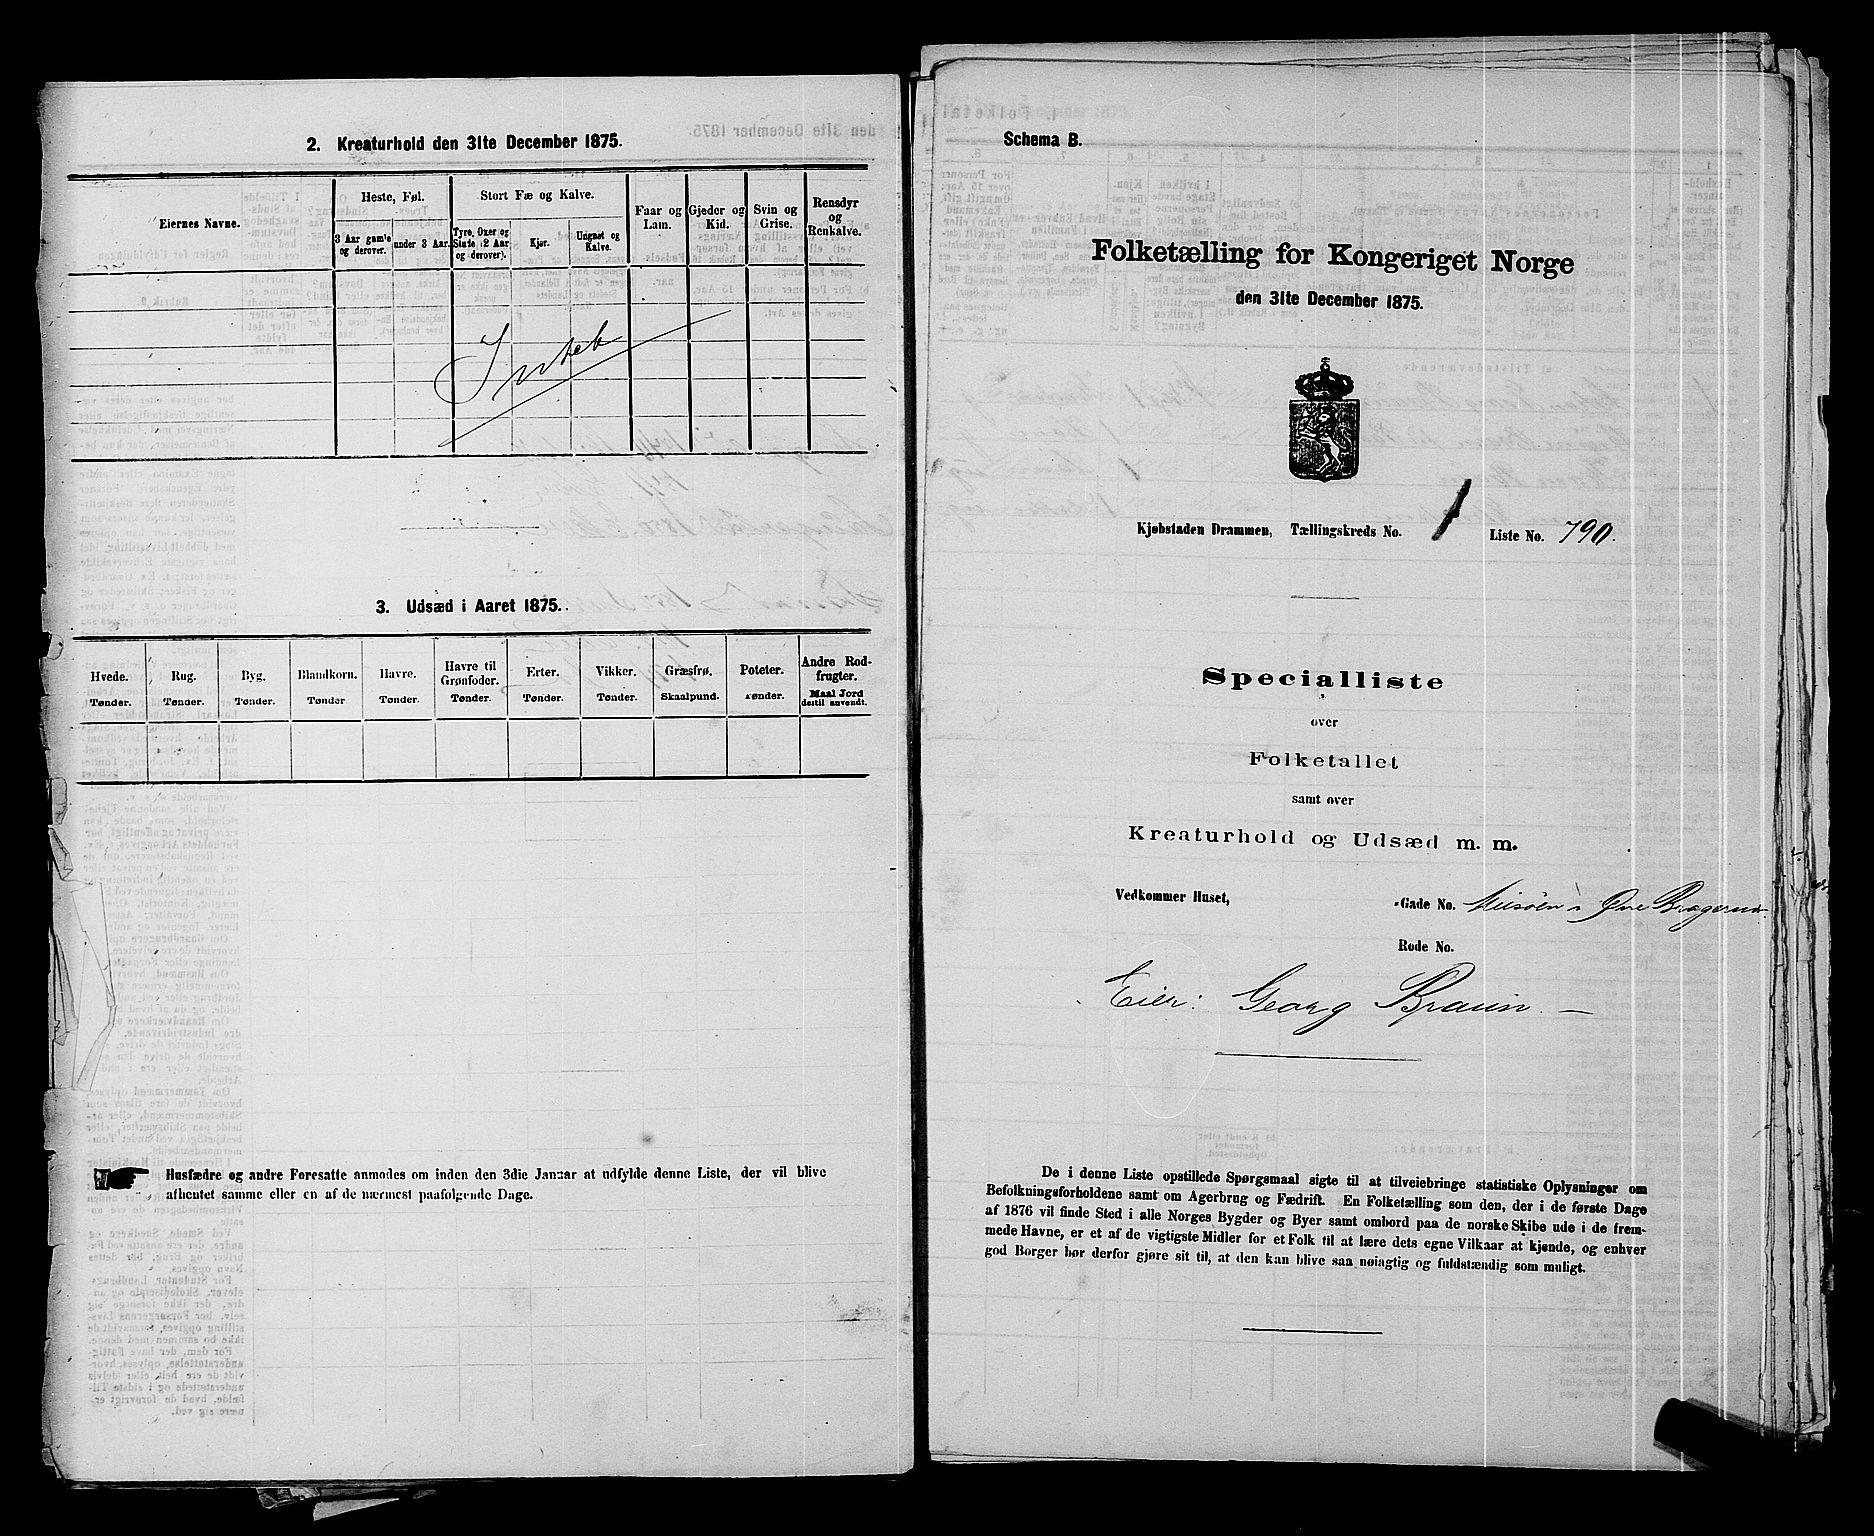 2. Kreaturhold den 31te December 1875.
Eiernes Navne.
Heste, Føl.
3 Aar gamle og derover.
under 3 Aar.
Stort Fæ og Kalve.
Tyre, Oxer og Stude (2 Aar og derover).
Kjør.
Ungnøt og Kalve.
Faar og Lam.
Gjeder og Kid.
Svin og Grise.
Rensdyr og Renkalve.
Intet
3. Udsæd i Aaret 1875.
Hvede. Rug. Byg. Blandkorn. Havre. Havre til Grønfoder. Erter. Vikker. Græsfrø. Poteter. Andre Rodfrugter.
Tønder. Tønder. Tønder. Tønder Tønder. Tønder. Tønder. Tønder. Skaalpund. Tønder. Maal Jord dertil anvendt.
Husfædre og andre Foresatte anmodes om inden den 3die Januar at udfylde denne Liste, der vil blive
afhentet samme eller en af de nærmest paafølgende Dage.
Schema B.
Folketælling for Kongeriget Norge
den 31te December 1875.
Kjøbstaden Drammen, Tællingskreds No. 1 Liste No. 790.
Specialliste
over
Folketallet
samt over
Kreaturhold og Udsæd m. m.
Vedkommer Huset, -Gade No. Øvre Bragernæs
Rode No.
Eier: Georg Braun. —
De i denne Liste opstillede Spørgsmaal sigte til at tilveiebringe statistiske Oplysninger om
Befolkningsforholdene samt om Agerbrug og Fædrift. En Folketælling som den, der i de første Dage
af 1876 vil finde Sted i alle Norges Bygder og Byer samt ombord paa de norske Skibe ude i de frem-
mede Havne, er et af de vigtigste Midler for et Folk til at lære dets egne Vilkaar at kjende, og enhver
god Borger bør derfor gjøre sit til, at den kan blive saa nøiagtig og fuldstændig som muligt.